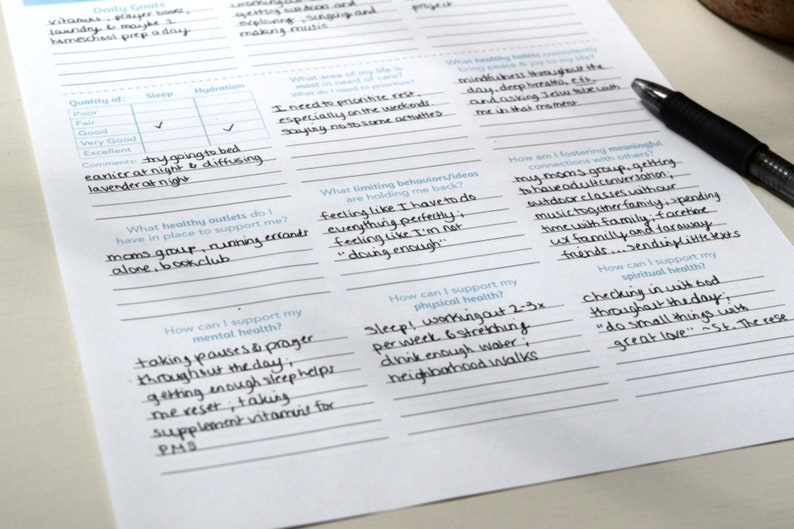 Daily Goals
vitamins, prayer books,
laundry & maybe 1
homeschool prep a day
getting outdoors and
exploring, singing and
making music
project
Quality of: Sleep Hydration
Poor
Fair
Good
Very Good
Excellent
✓
✓
Comments: try going to bed
earlier at night & diffusing
lavender at night
What area of my life is
most in need of care?
What do I need to prioritize?
I need to prioritize rest,
especially on the weekends
saying no to some activities
What healthy habits consistently
bring peace & joy to my life?
mindfulness throughout the
day, deep breaths, e.f.t,
and asking Jesus to be with
me in that moment
What healthy outlets do I
have in place to support me?
moms group, running errands
alone, book club
What limiting behaviors/ideas
are holding me back?
feeling like I have to do
everything perfectly;
feeling like I'm not
"doing enough"
How am I fostering meaningful
connections with others?
my moms group, getting
to have adult conversation;
outdoor classes with our
music together family; spending
time with family; facetime
w/ family and faraway
friends... sending little texts
How can I support my
mental health?
taking pauses & prayer
throughout the day;
getting enough sleep helps
me reset; taking
supplement vitamins for
PMS
How can I support my
physical health?
Sleep! working out 2-3x
per week & stretching
drink enough water;
neighborhood walks
How can I support my
spiritual health?
checking in with God
throughout the day;
"do small things with
great love" ~ St. Therese